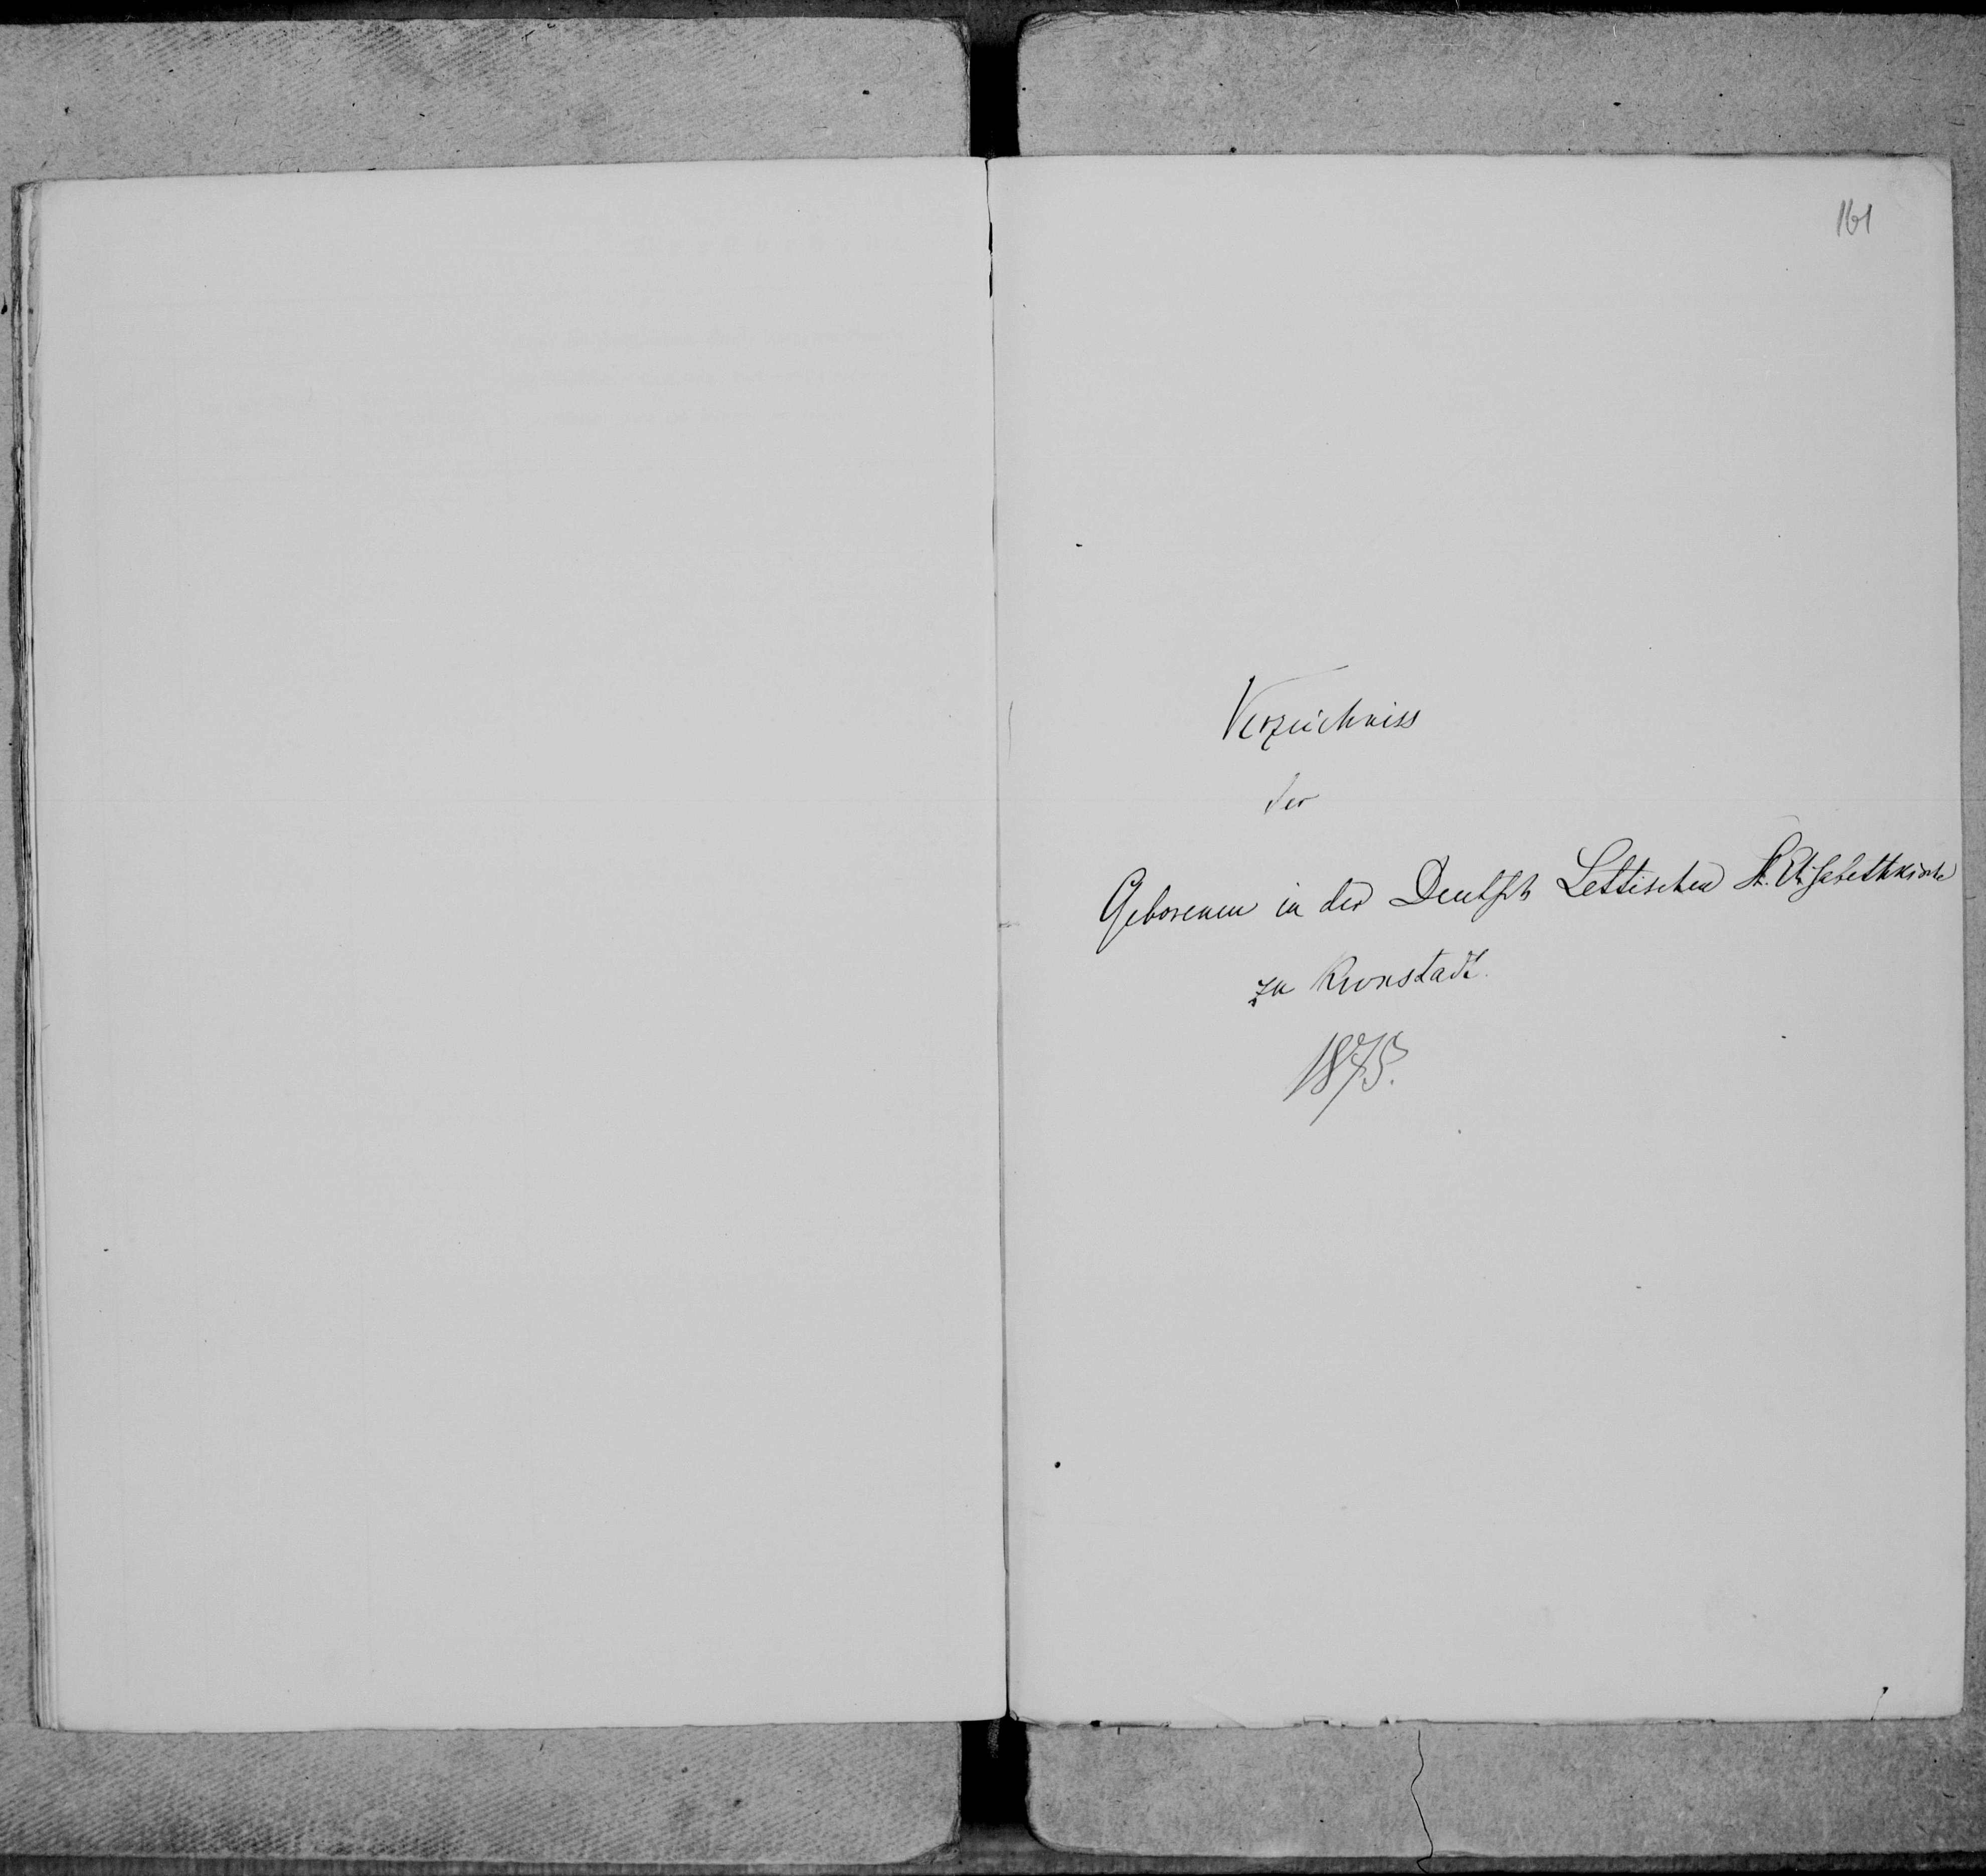 161
Verzeichniss
der
Geborenen in der Deutsch Lettischen St. Elisabethkirche
zu Kronstadt.
1875.